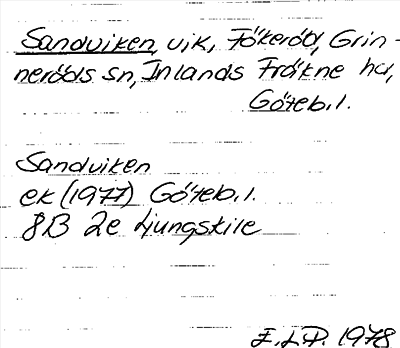 Sandviken, vik, Fökeröd, Grin-
neröds sn, Inlands Fräkne hd,
Göteb. l.
Sandviken
ek (1977) Göteb. l.
8B 2e Ljungskile
E.L.P. 1978